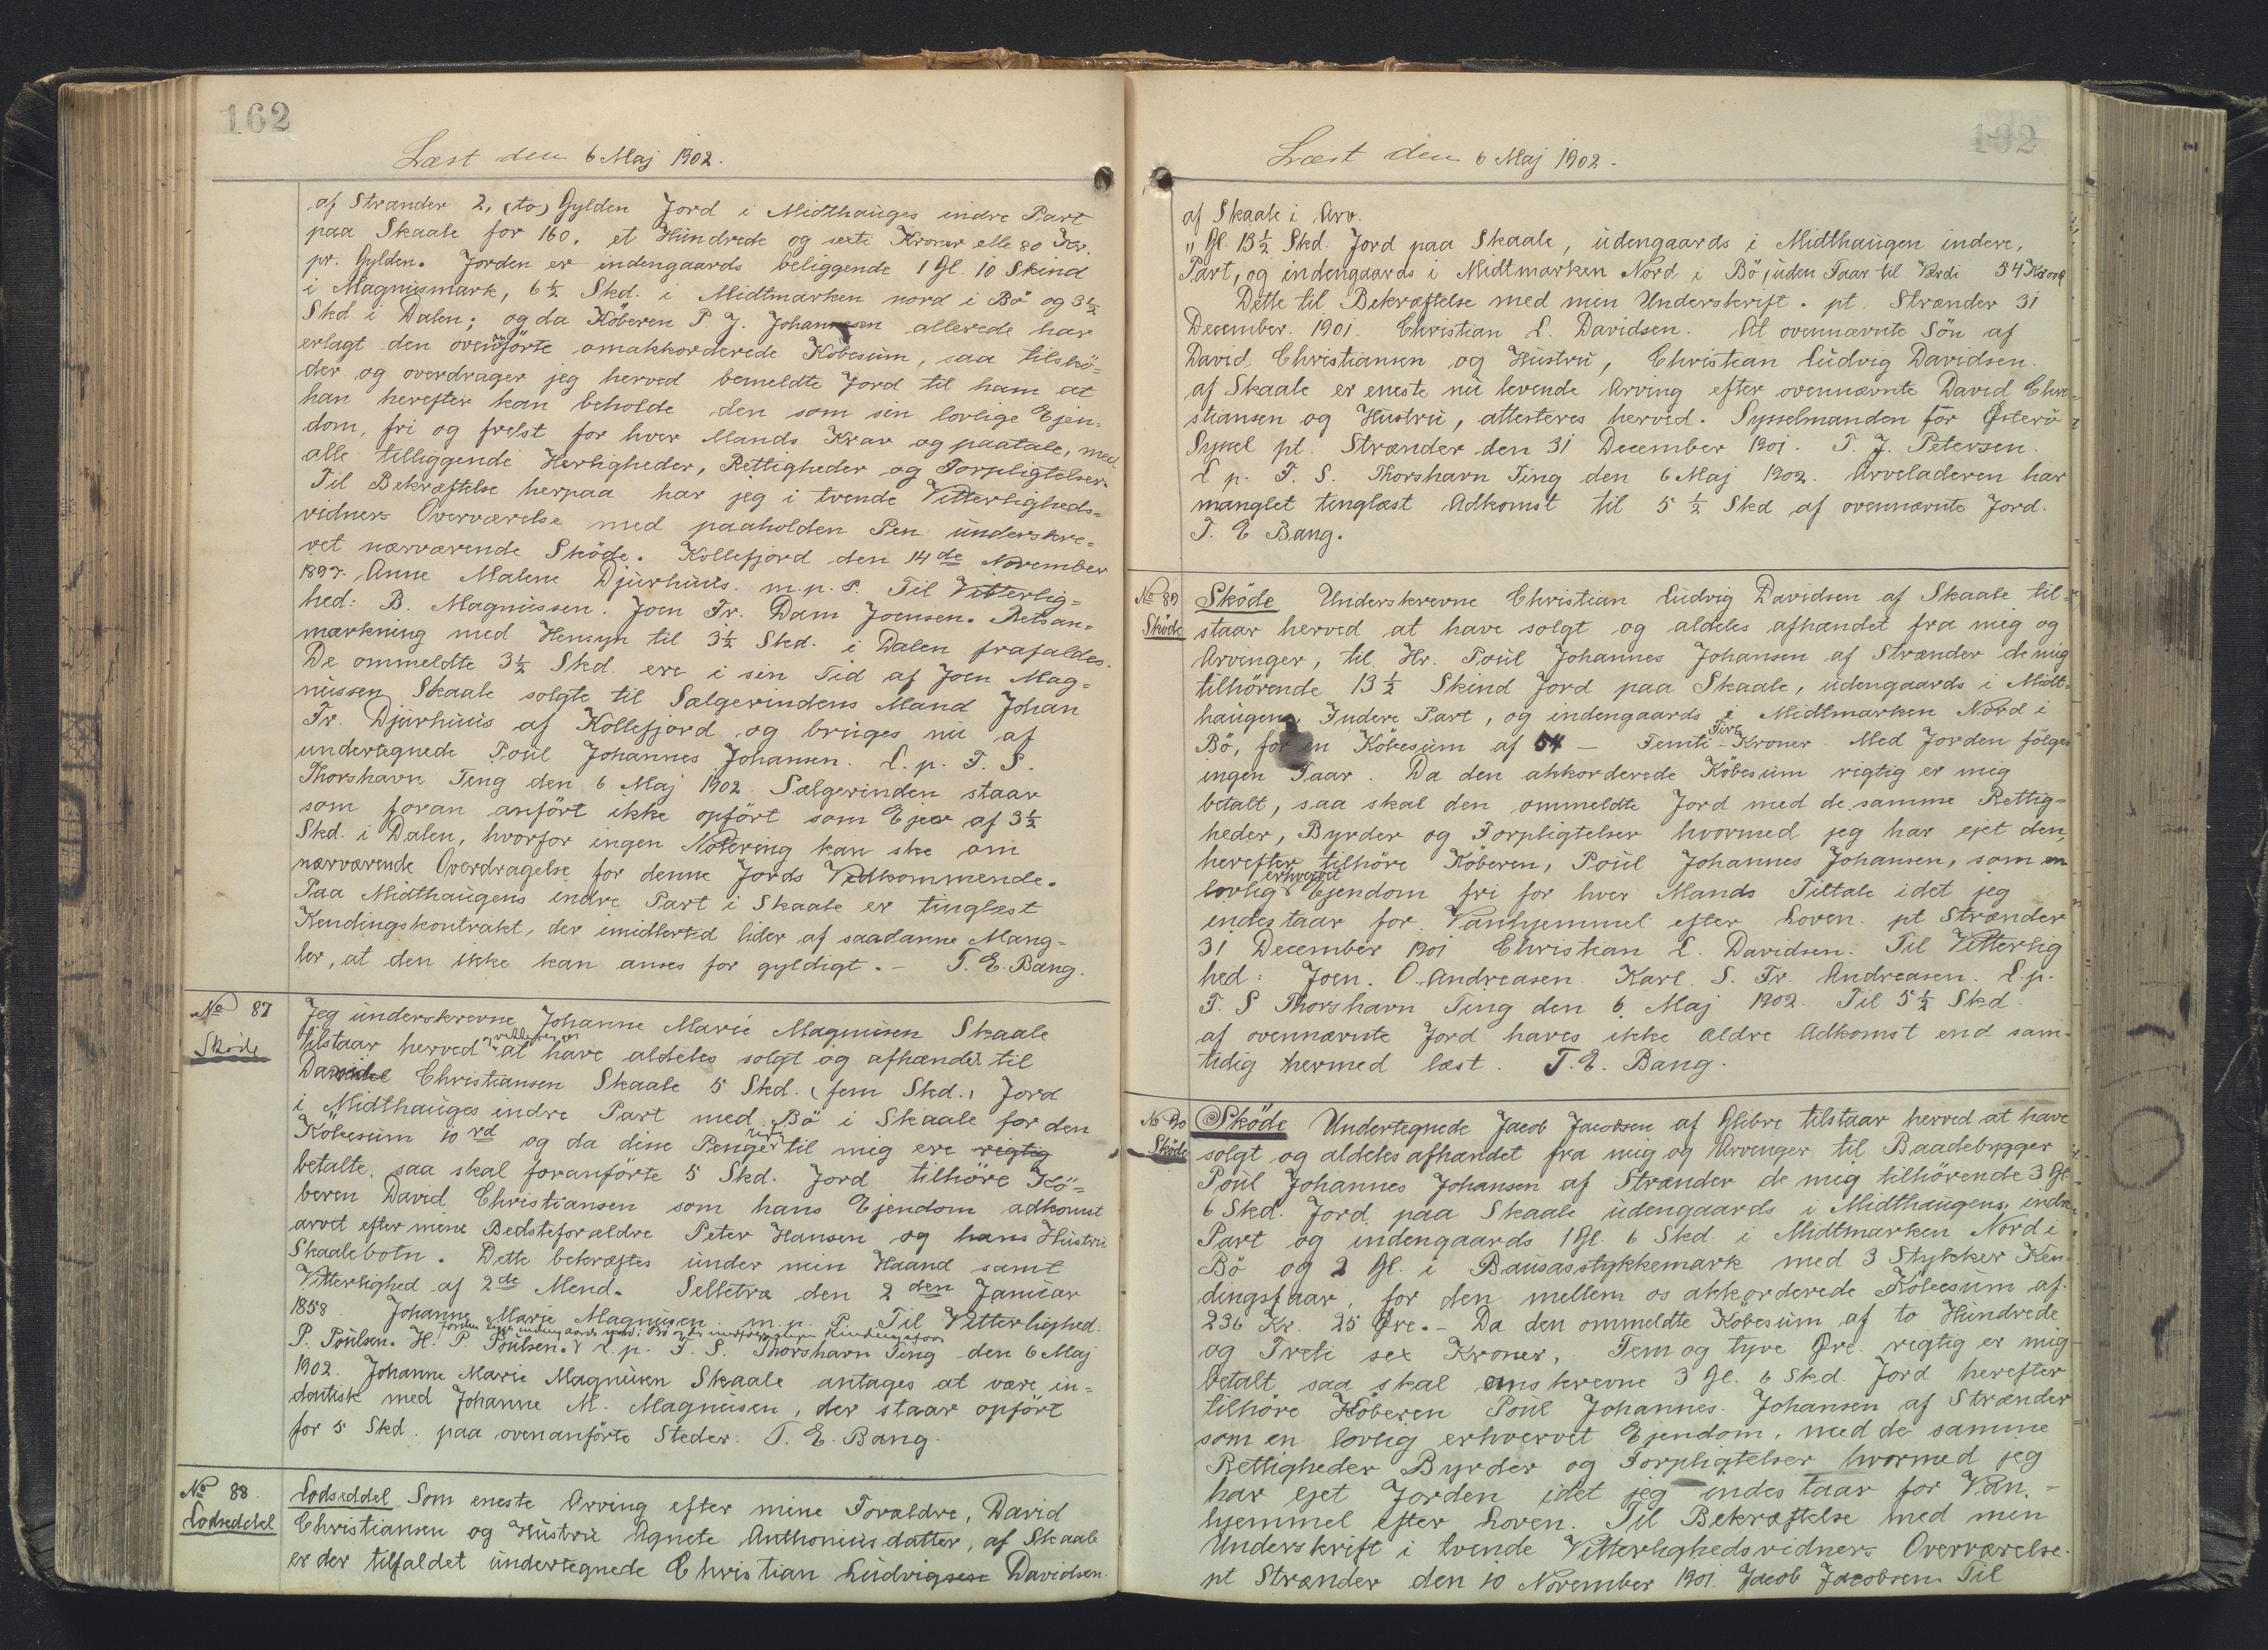 162
Læst den 6 Maj 1902.
af Strænder 2, (to) Gylden Jord i Midthauges indre Part
paa Skaale for 160. et Hundrede og sexti Kroner elle 80 Kr.
pr. Gylden. Jorden er indengaards beliggende 1 Gl. 10 Skind
i Magnusmark, 6½ Skd. i Midtmarken nord i Bö og 3½
Skd i Dalen; og da Köberen P. J. Johannesen allerede har
erlagt den ovenanförte omakkorderede Köbesum, saa tilskö=
der og overdrager jeg herved bemeldte Jord til ham at
han herefter kan beholde den som sin lovlige Ejen=
dom, fri og frelst for hver Mands Krav og paatale, med
alle tilliggende Herligheder, Rettigheder og Forpligtelser.
Til Bekræftelse herpaa har jeg i tvende Vitterligheds=
vidners Overværelse med paaholden Pen underskre=
vet nærværende Sköde. Kollefjord den 14de November
1897. Anne Malene Djurhuus. m.p.P. Til Vitterlig=
hed: B. Magnussen. Joen Fr. Dam Joensen. Retsan=
mærkning med Hensyn til 3½ Skd. i Dalen frafaldes.
De ommeldte 3½ Skd. ere i sin Tid af Joen Mag=
nussen Skaale solgte til Sælgerindens Mand Johan
Fr. Djurhuus af Kollefjord og bruges nu af
undertegnede Poul Johannes Johansen. L. p. F. S.
Thorshavn Ting den 6 Maj 1902. Sælgerinden staar
som foran anfört ikke opfört som Ejer af 3½
Skd. i Dalen, hvorfor ingen Notering kan ske om
nærværende Overdragelse for denne Jords Vedkommende.
Paa Midthaugens indre Part i Skaale er tinglæst
Kendingskontrakt, der imidlertid lider af saadanne Mang=
ler, at den ikke kan anses for gyldigt. — T. E. Bang.
No 87 Jeg underskrevne Johanne Marie Magnusen Skaale
Sköde tilstaar herved at have aldeles solgt og afhændet til
David Christiansen Skaale 5 Skd. (fem Skd.) Jord
i Midthauges indre Part med Bö i Skaale for den
Köbesum 10 rd og da disse Penge til mig ere rigtig
betalte, saa skal foranförte 5 Skd. Jord tilhöre Kö=
beren David Christiansen som hans Ejendom adkomst
arvet efter mine Bedsteforældre Peter Hansen og hans Hustru
Skaalebotn. Dette bekræftes under min Haand samt
Vitterlighed af 2de Mend. Selletræ den 2den Januar
1858. Johanne Marie Magnusen. m. p. P. Til Vitterlighed.
P. Poulsen. H. P. Poulsen. L. p. F. S. Thorshavn Ting den 6 Maj
1902. Johanne Marie Magnusen Skaale antages at være in=
dentisk med Johanne M. Magnusen, der staar opfört
for 5 Skd. paa ovenanförte Steder. T. E. Bang.
No 88. Lodseddel Som eneste Arving efter mine Forældre, David
Lodseddel Christiansen og Hustru Agnete Anthoniusdatter, af Skaale
er der tilfaldet undertegnede Christian Ludvigsen Davidsen
162
Læst den 6 Maj 1902.
af Skaale i Arv.
" Gl. 13½ Skd. Jord paa Skaale, udengaards i Midthaugen indere,
Part, og indengaards i Midtmarken Nord i Bö, uden Faar til Værdi 54 Kr 00 Ø
Dette til Bekræftelse med min Underskrift. pt. Strænder 31
December. 1901. Christian L. Davidsen. At ovennævnte Sön af
David Christiansen og Hustru, Christian Ludvig Davidsen.
af Skaale er eneste nu levende Arving efter ovennævnte David Chri=
stiansen og Hustru, attesteres herved. Sysselmanden for Østerö
Syssel pt. Strænder den 31 December 1901. T. J. Petersen.
L p. F. S. Thorshavn Ting den 6 Maj 1902. Arveladeren har
manglet tinglæst Adkomst til 5½ Skd af ovennævnte Jord.
T. E Bang.
No 89 Sköde Underskrevne Christian Ludvig Davidsen af Skaale til=
Sköde staar herved at have solgt og aldeles afhændet fra mig og
Arvinger, til Hr. Poul Johannes Johansen af Strænder de mig
tilhörende 13½ Skind Jord paa Skaale, udengaards i Midt=
haugens Indere Part, og indengaards i Midtmarken Nord i
Bö, for en Köbesum af 54 — Femti-Fire Kroner. Med Jorden fölger
ingen Faar. Da den akkorderede Köbesum rigtig er mig
betalt, saa skal den ommeldte Jord med de samme Rettig=
heder, Byrder og Forpligtelser hvormed jeg har ejet den,
herefter tilhöre Köberen, Poul Johannes Johansen, som en
lovlig erhvervet Ejendom fri for hver Mands Tiltale idet jeg
indestaar for Vanhjemmel efter Loven. pt Strænder
31 December 1901 Christian L. Davidsen. Til Vitterlig
hed: Joen. O. Andreasen. Karl. S. Fr. Andreasen. L.p.
F. S Thorshavn Ting den 6 Maj 1902. Til 5½ Skd.
af ovennævnte Jord haves ikke ældre Adkomst end sam=
tidig hermed læst. T. E. Bang.
No 90 Sköde Undertegnede Jacob Jacobsen af Glibre tilstaar herved at have
Sköde solgt og aldeles afhændet fra mig og Arvinger til Baadebygger
Poul Johannes Johansen af Strænder de mig tilhörende 3 Gl
6 Skd. Jord paa Skaale udengaards i Midthaugens, indre
Part og indengaards 1 Gl. 6 Skd i Midtmarken Nord i
Bö og 2 Gl. i Bausasstykkemark med 3 Stykker Ken=
dingsfaar, for den mellem os akkorderede Köbesum af
236 Kr. 25 Øre. — Da den ommeldte Köbesum af to Hundrede
og Treti sex Kroner, Fem og tyve Øre. rigtig er mig
betalt saa skal omskrevne 3 Gl. 6 Skd. Jord herefter
tilhöre Köberen Poul Johannes. Johansen af Strænder
som en lovlig erhvervet Ejendom. med de samme
Rettigheder Byrder og Forpligtelser hvormed jeg
har ejet Jorden idet jeg indestaar for Van=
hjemmel efter Loven. Til Bekræftelse med min
Underskrift i tvende Vitterlighedsvidners Overværelse.
pt Strænder den 10 November 1901. Jacob Jacobsen. Til